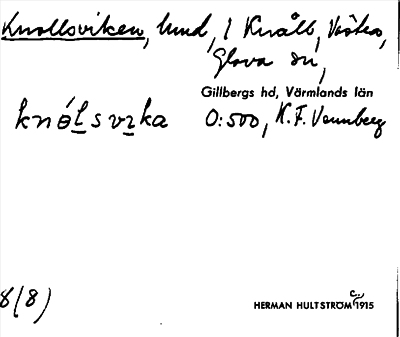 Knollsviken, hmd, 1 Knåll, Västra,
Glava sn,
Gillbergs hd, Värmlands län
knól̲svɪ̲ka O:500, K. F. Vennberg
8(8)
HERMAN HULTSTRÖM c. 1915